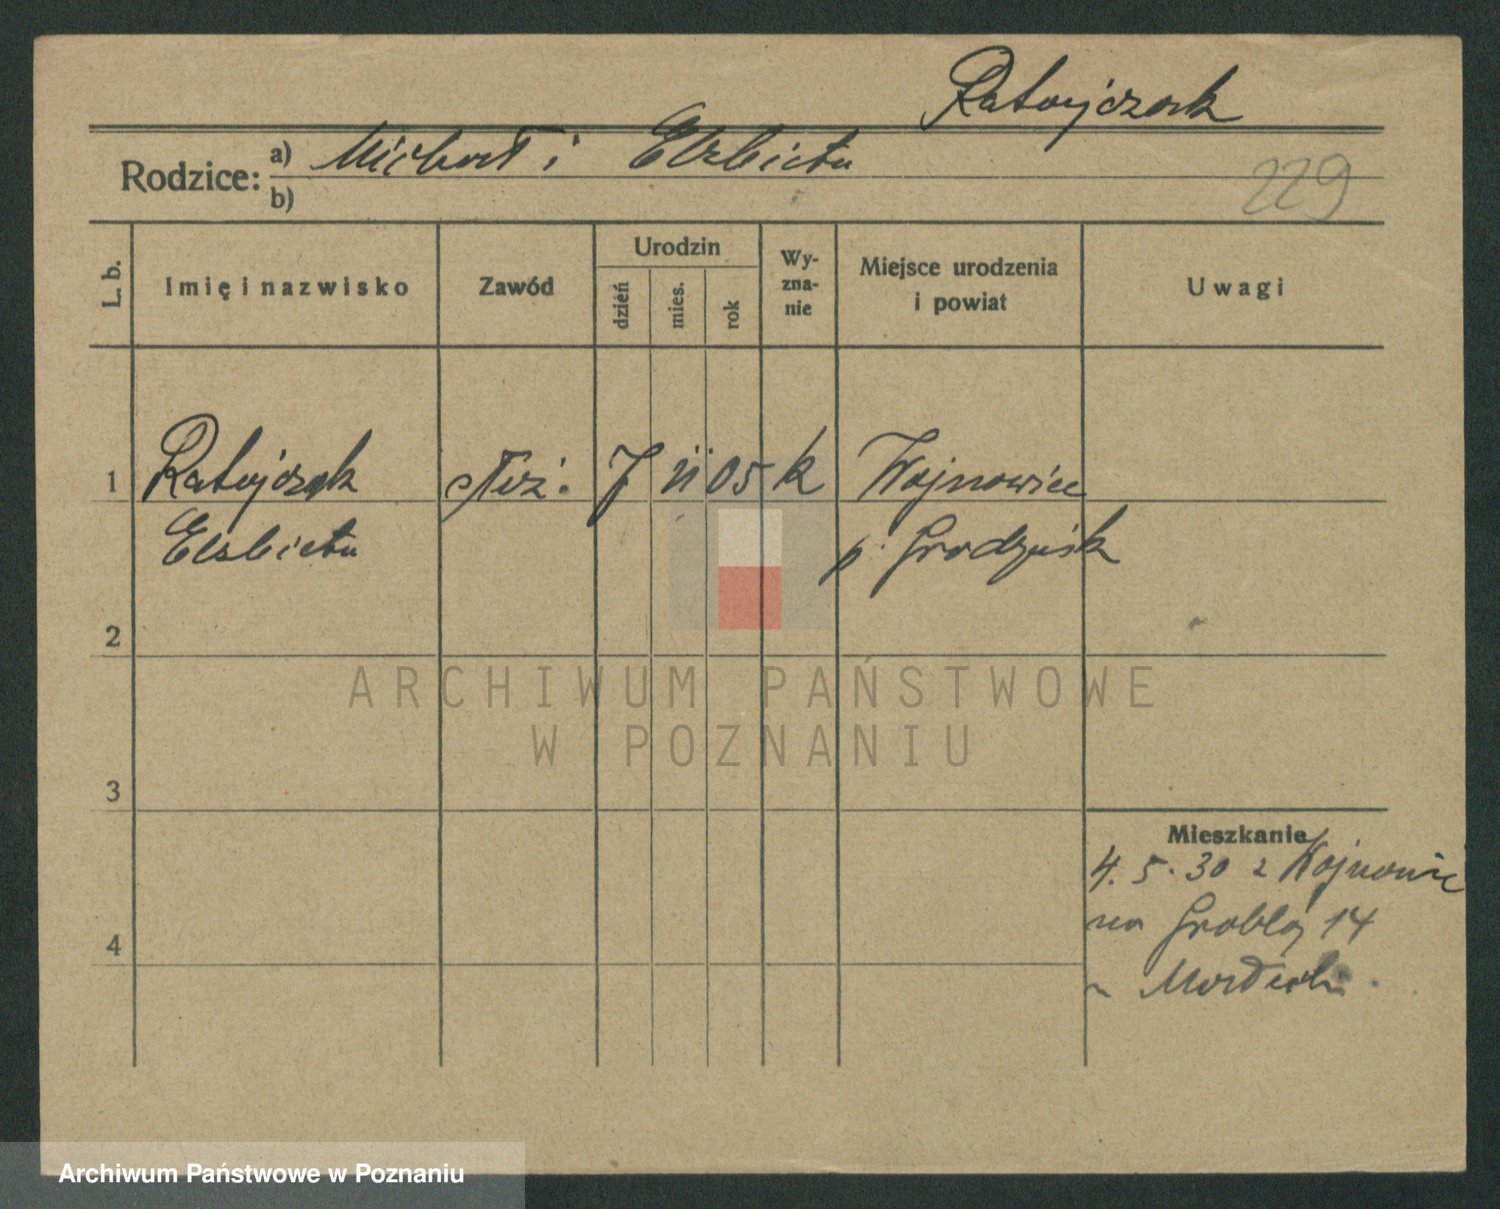 Ratajczak
Rodzice: a) Michał i Elżbieta
b)
229
L. b.
Imię i nazwisko
Zawód
Urodzin
dzień
mies.
rok
Wy-
zna-
nie
Miejsce urodzenia
i powiat
Uwagi
1
Ratajczak
służ.
7
11
05
k
Wojnowice
Elżbieta
p. Grodzisk
2
3
4
Mieszkanie
4. 5. 30 z Wojnowic
na Groblą 14
ARCHIWUM PAŃSTWOWE
W POZNANIU
Archiwum Państwowe w Poznaniu